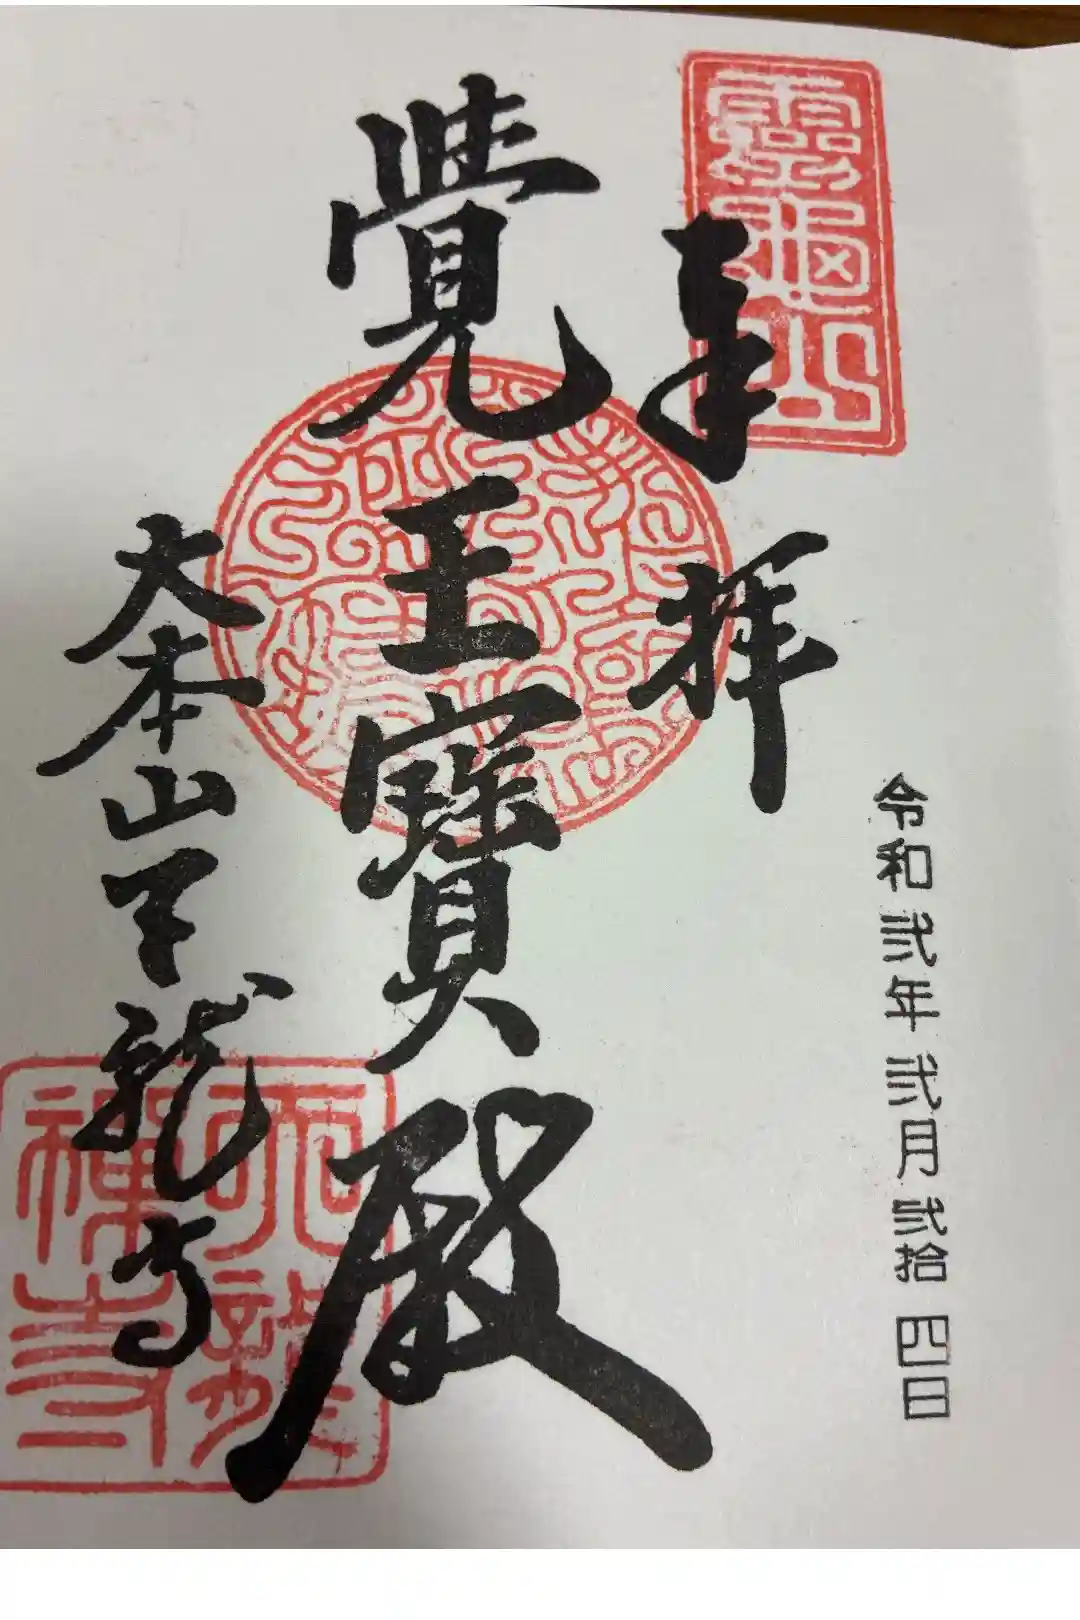 靈龜山
奉拝
令和弐年弐月弐拾四日
覺王寶殿
大本山天龍寺
天龍禅寺